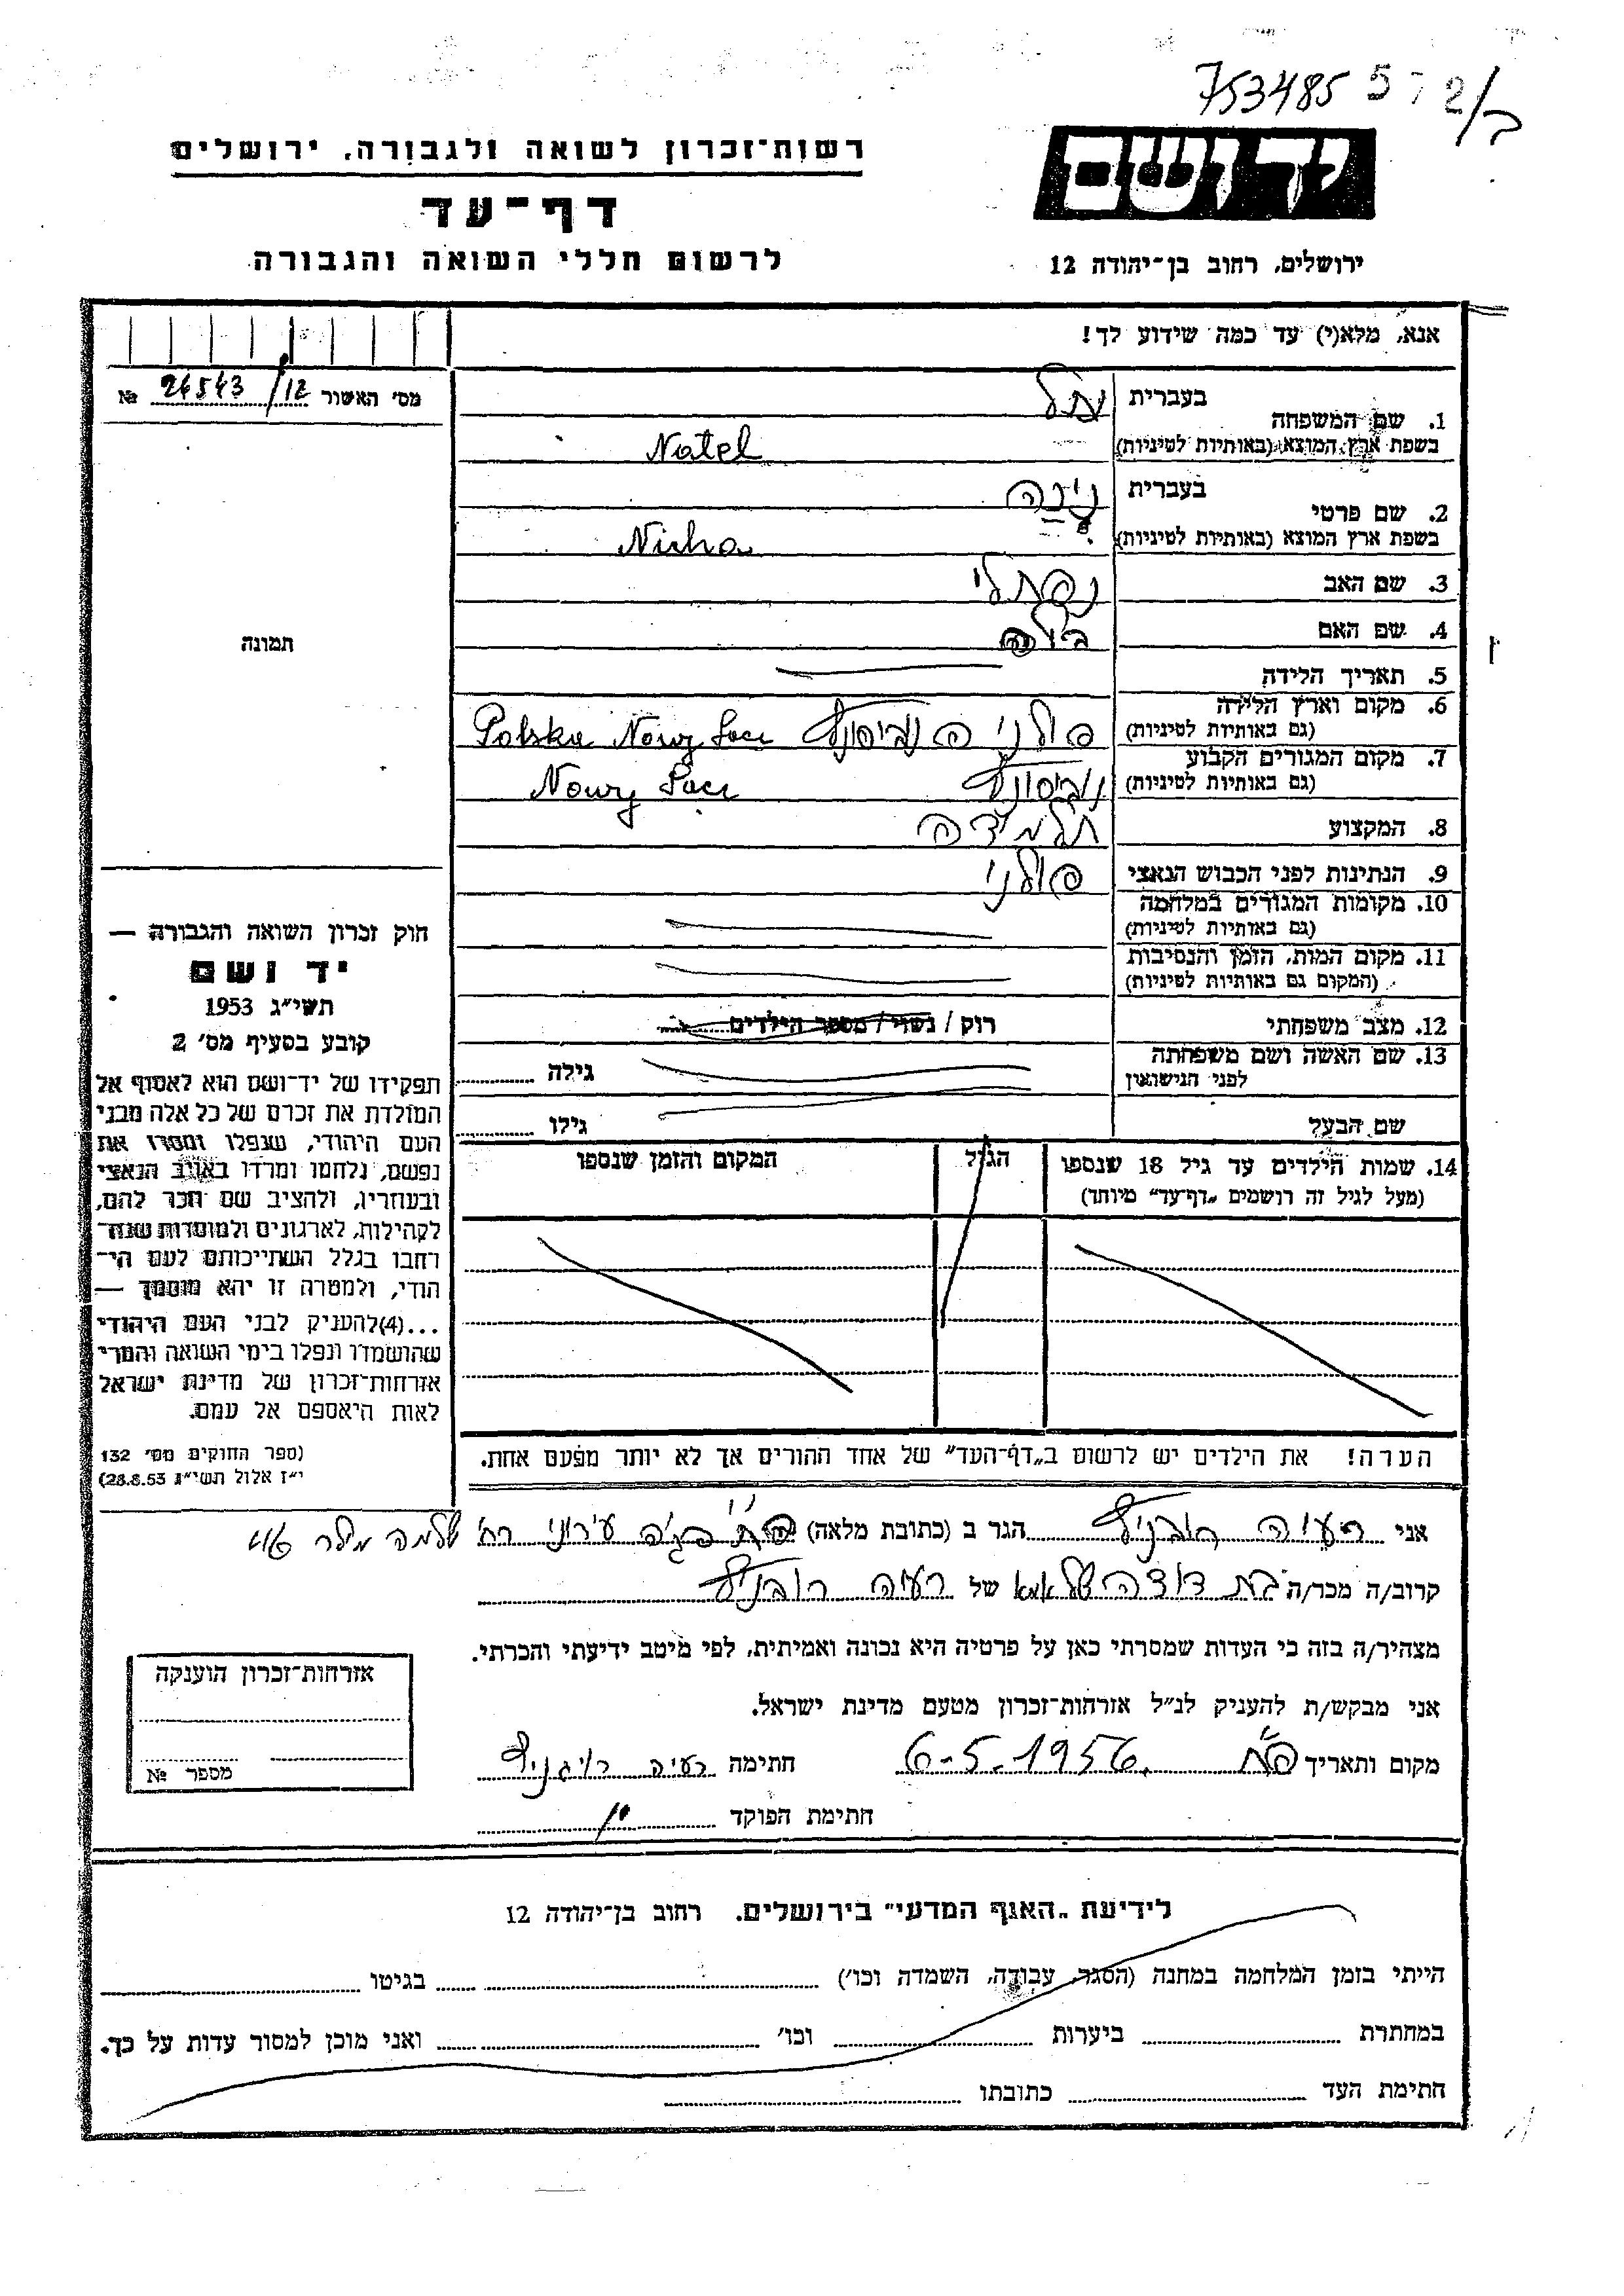 753485 572/ב
רשות־זכרון לשואה ולגבורה, ירושלים
יד ושם
דף־עד
לרשום חללי השואה והגבורה
ירושלים, רחוב בן־יהודה 12
אנא, מלא(י) עד כמה שידוע לך!
מס' האשור 24543/12 №
1. שם המשפחה
בעברית נתל
בשפת ארץ המוצא (באותיות לטיניות) Natel
2. שם פרטי
בעברית
בשפת ארץ המוצא (באותיות לטיניות)
3. שם האב נפתלי
4. שם האם
5. תאריך הלידה
6. מקום וארץ הלידה
(גם באותיות לטיניות) פולני Polska Nowy Sacz
7. מקום המגורים הקבוע
(גם באותיות לטיניות) Nowy Sacz
8. המקצוע תלמידה
9. הנתינות לפני הכבוש הנאצי פולני
10. מקומות המגורים במלחמה
(גם באותיות לטיניות)
11. מקום המות, הזמן והנסיבות
(המקום גם באותיות לטיניות)
12. מצב משפחתי רוק / נשוי / מספר הילדים
13. שם האשה ושם משפחתה
לפני הנישואין גילה
שם הבעל גילו
14. שמות הילדים עד גיל 18 שנספו
(מעל לגיל זה רושמים „דף־עד" מיוחד)
הגיל
המקום והזמן שנספו
הערה! את הילדים יש לרשום ב„דף־העד" של אחד ההורים אך לא יותר מפעם אחת.
תמונה
חוק זכרון השואה והגבורה —
יד ושם
תשי"ג 1953
קובע בסעיף מס' 2
תפקידו של יד־ושם הוא לאסוף אל
המולדת את זכרם של כל אלה מבני
העם היהודי, שנפלו ומסרו את
נפשם, נלחמו ומרדו באויב הנאצי
ובעוזריו, ולהציב שם וזכר להם,
לקהילות, לארגונים ולמוסדות שנח־
רבו בגלל השתייכותם לעם הי־
הודי, ולמטרה זו יהא מוסמך —
...(4) להעניק לבני העם היהודי
שהושמדו ונפלו בימי השואה והמרי
אזרחות־זכרון של מדינת ישראל
לאות היאספם אל עמם.
(ספר החוקים מס' 132
י"ז אלול תשי"ג 28.8.53)
אני רעיה הגר ב (כתובת מלאה)
קרוב/ה מכר/ה בת דודה של אמא של רעיה
מצהיר/ה בזה כי העדות שמסרתי כאן על פרטיה היא נכונה ואמיתית, לפי מיטב ידיעתי והכרתי.
אני מבקש/ת להעניק לנ"ל אזרחות־זכרון מטעם מדינת ישראל.
מקום ותאריך 6-5-1956 חתימה רעיה
חתימת הפוקד
אזרחות־זכרון הוענקה
מספר №
לידיעת „האגף המדעי" בירושלים. רחוב בן־יהודה 12
הייתי בזמן המלחמה במחנה (הסגר, עבודה, השמדה וכו') בגיטו
במחתרת ביערות וכו' ואני מוכן למסור עדות על כך.
חתימת העד כתובתו